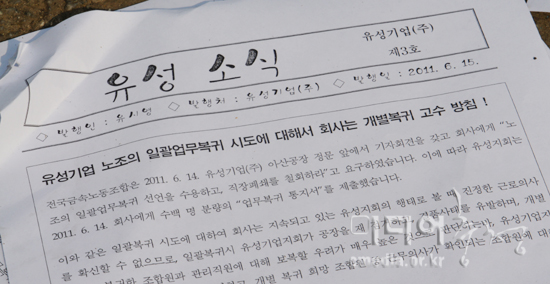 유성기업(주)
제3호
유성 소식
◇ 발행인 : 유시영 ◇ 발행처 : 유성기업(주) ◇ 발행일 : 2011. 6. 15.
유성기업 노조의 일괄업무복귀 시도에 대해서 회사는 개별복귀 고수 방침 !
전국금속노동조합은 2011. 6. 14. 유성기업(주) 아산공장 정문 앞에서 기자회견을 갖고 회사에게 "노
조의 일괄업무복귀 선언을 수용하고, 직장폐쇄를 철회하라"고 요구하였습니다. 이에 따라 유성지회는
2011. 6. 14. 회사에게 수백 명 분량의 "업무복귀 통지서"를 제출했습니다.
이와 같은 일괄복귀 시도에 대하여 회사는 지속되고 있는 유성지회의 행태로 볼 때 진정한 근로의사
를 확신할 수 없으므로, 일괄복귀시 유성기업지회가 공장을 재
조합원과 관리직원에 대해 보복할 우려가 매우 높은
개별 복귀 희망 조합원은
미디어충청
cmedia.or.kr